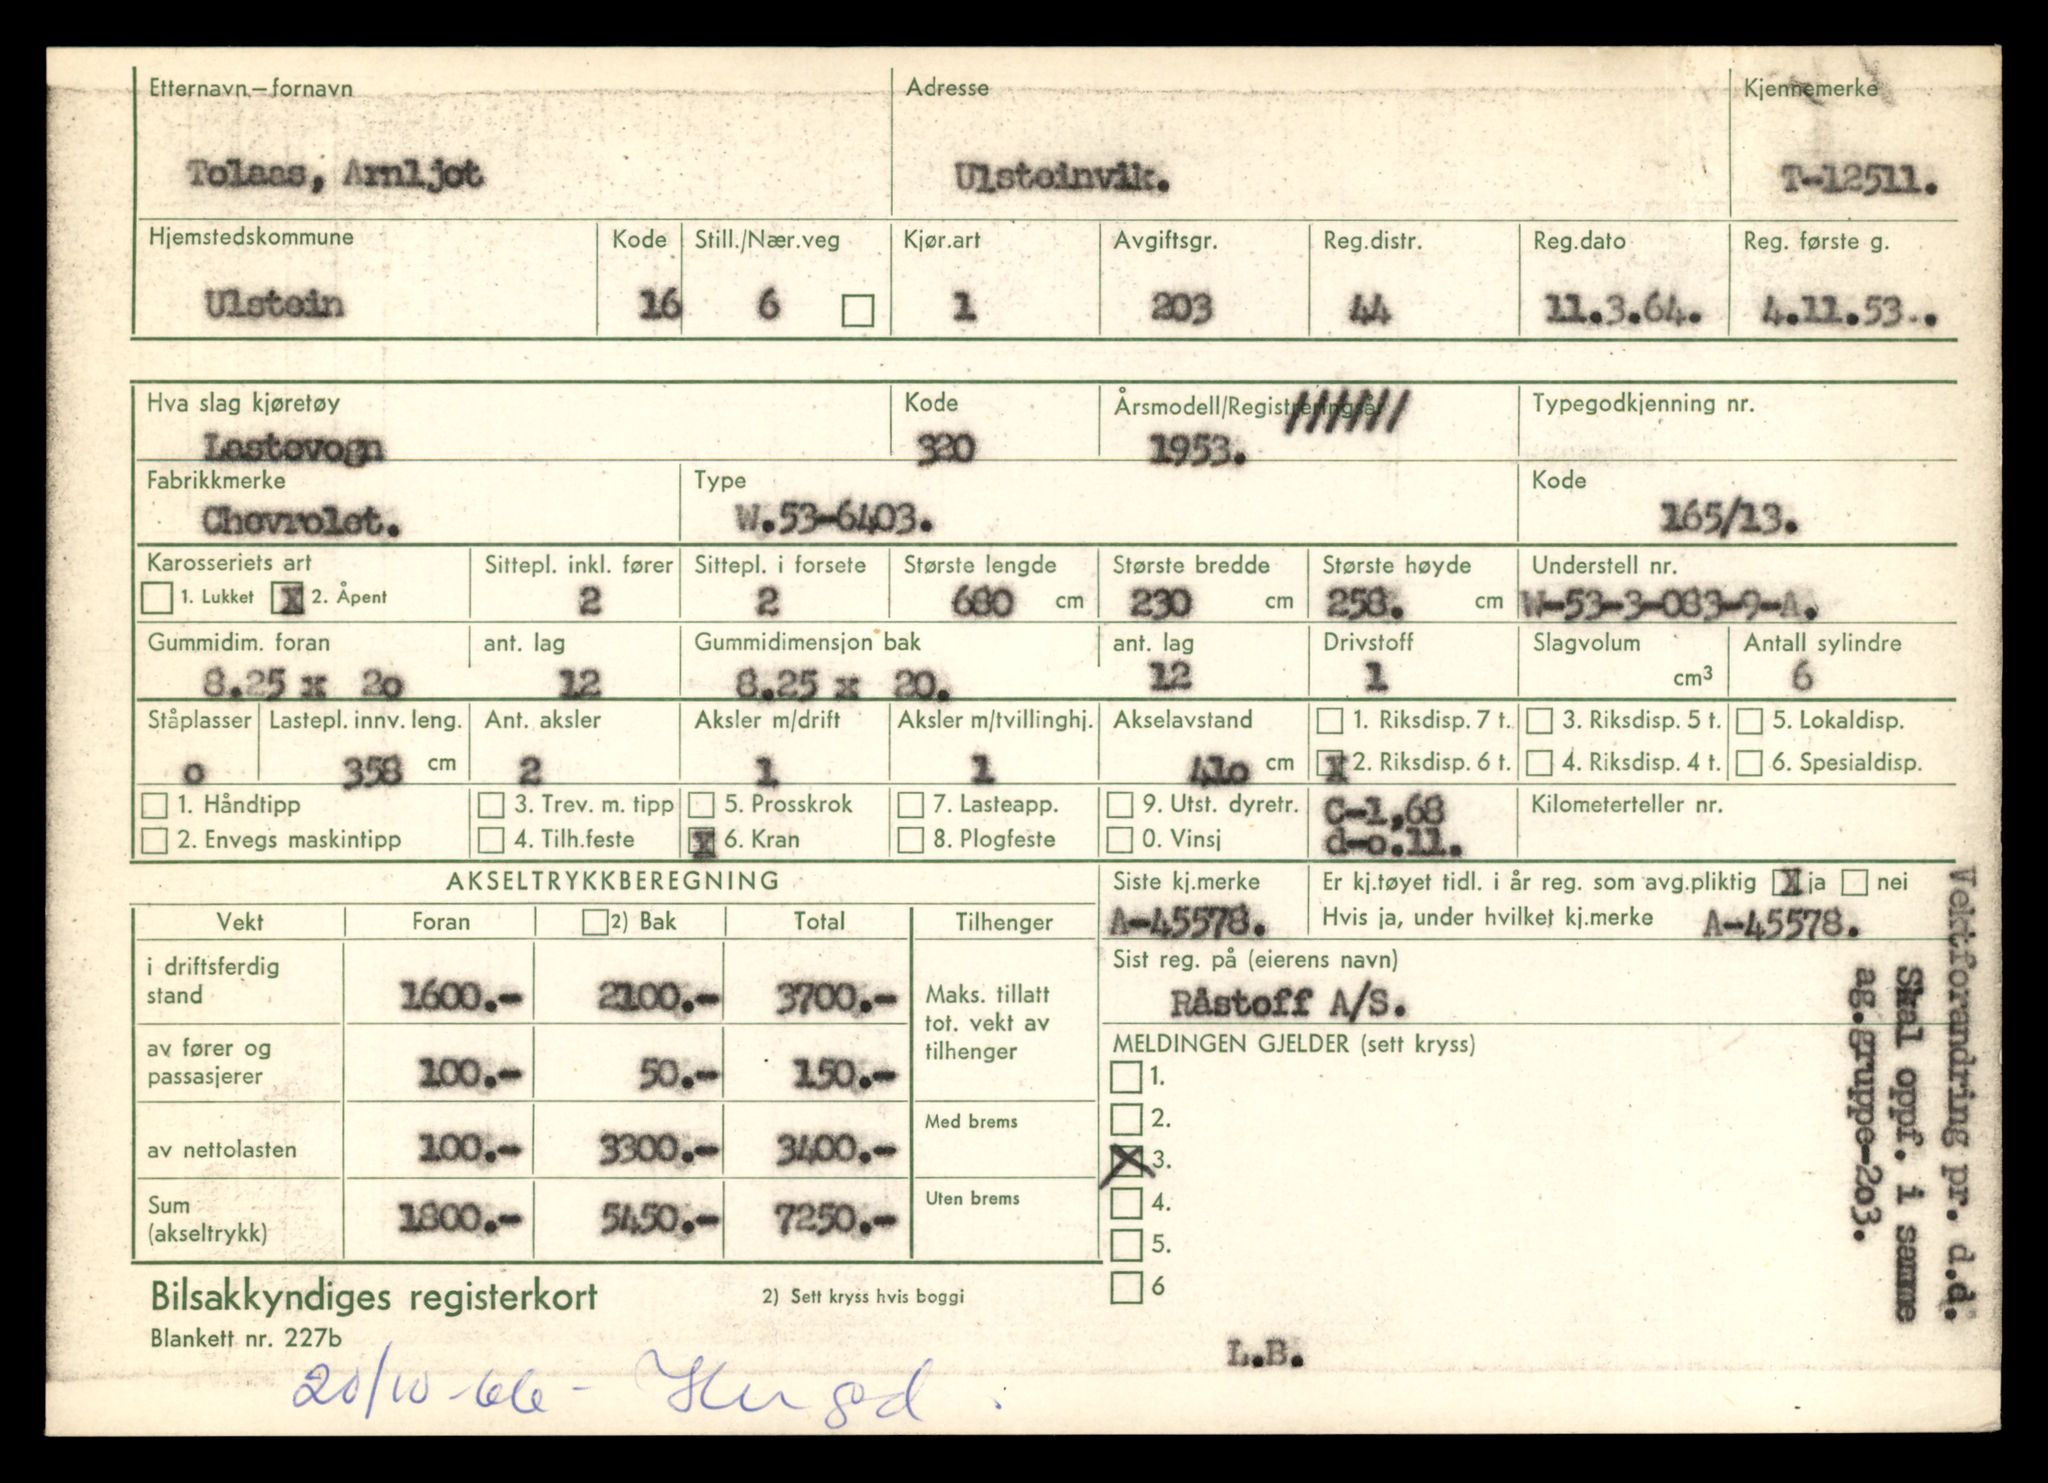 Etternavn – fornavn Adresse Kjennemerke
Tolaas, Arnljot Ulsteinvik. T-12511.
Hjemstedskommune Kode Still./Nær.veg Kjør.art Avgiftsgr. Reg.distr. Reg.dato Reg. første g.
Ulstein 16 6 1 203 44 11.3.64. 4.11.53..
Hva slag kjøretøy Kode Årsmodell/Registreringsår ////// Typegodkjenning nr.
Lastevogn 320 1953.
Fabrikkmerke Type Kode
Chevrolet. W.53-6403. 165/13.
Karosseriets art Sittepl. inkl. fører Sittepl. i forsete Største lengde Største bredde Største høyde Understell nr.
1. Lukket X 2. Åpent 2 2 680 cm 230 cm 258. cm W-53-3-083-9-A.
Gummidim. foran ant. lag Gummidimensjon bak ant. lag Drivstoff Slagvolum Antall sylindre
8.25 x 2o 12 8.25 x 20. 12 1 cm³ 6
Ståplasser Lastepl. innv. leng. Ant. aksler Aksler m/drift Aksler m/tvillinghj. Akselavstand 1. Riksdisp. 7 t. 3. Riksdisp. 5 t. 5. Lokaldisp.
o 358 cm 2 1 1 41o cm X 2. Riksdisp. 6 t. 4. Riksdisp. 4 t. 6. Spesialdisp.
1. Håndtipp 3. Trev. m. tipp 5. Prosskrok 7. Lasteapp. 9. Utst. dyretr. C-1,68 Kilometerteller nr.
2. Envegs maskintipp 4. Tilh.feste X 6. Kran 8. Plogfeste 0. Vinsj d-o.11.
AKSELTRYKKBEREGNING Siste kj.merke Er kj.tøyet tidl. i år reg. som avg.pliktig X ja nei
Vekt Foran 2) Bak Total Tilhenger A-45578. Hvis ja, under hvilket kj.merke A-45578.
i driftsferdig stand 1600.- 2100.- 3700.- Maks. tillatt tot. vekt av tilhenger
Sist reg. på (eierens navn)
Råstoff A/S.
av fører og passasjerer 100.- 50.- 150.-
MELDINGEN GJELDER (sett kryss)
1.
av nettolasten 100.- 3300.- 3400.- Med brems
2.
X 3.
Sum (akseltrykk) 1800.- 5450.- 7250.- Uten brems
4.
5.
6
Vektforandring pr. d.d.
Skal oppf. i samme
ag.gruppe-2o3.
Bilsakkyndiges registerkort 2) Sett kryss hvis boggi
Blankett nr. 227b
L.B.
20/10-66-